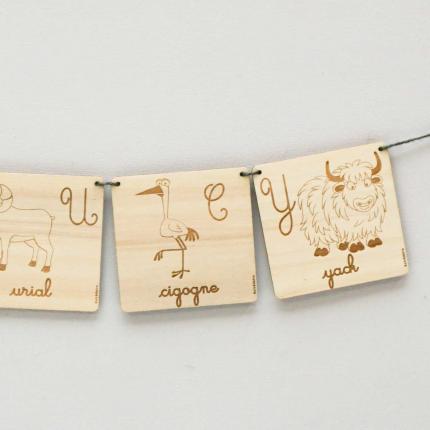 U
urial
C
cigogne
Y
yack